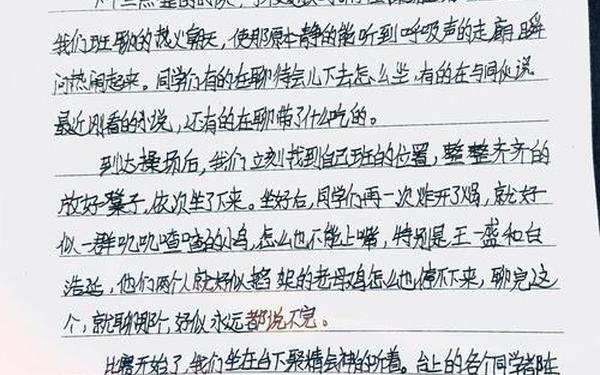 我们班聊的热火朝天，使那原本静的能听到呼吸声的走廊瞬
间热闹起来。同学们有的在聊待会儿下去怎么坐，有的在与同伙说
最近刚看的小说，还有的在聊带了什么吃的。
到达操场后，我们立刻找到自己班的位置，整整齐齐的
放好凳子，依次坐了下来。坐好后，同学们再一次炸开了锅，就好
似一群叽叽喳喳的小鸟，怎么也不能上嘴，特别是王一盛和白
浩延，他们两个人就好似掐架的老母鸡怎么也停不下来，聊完这
个，就聊那个，好似永远都说不完。
比赛开始了，我们坐在台下聚精会神的听着。台上的各个同学都在